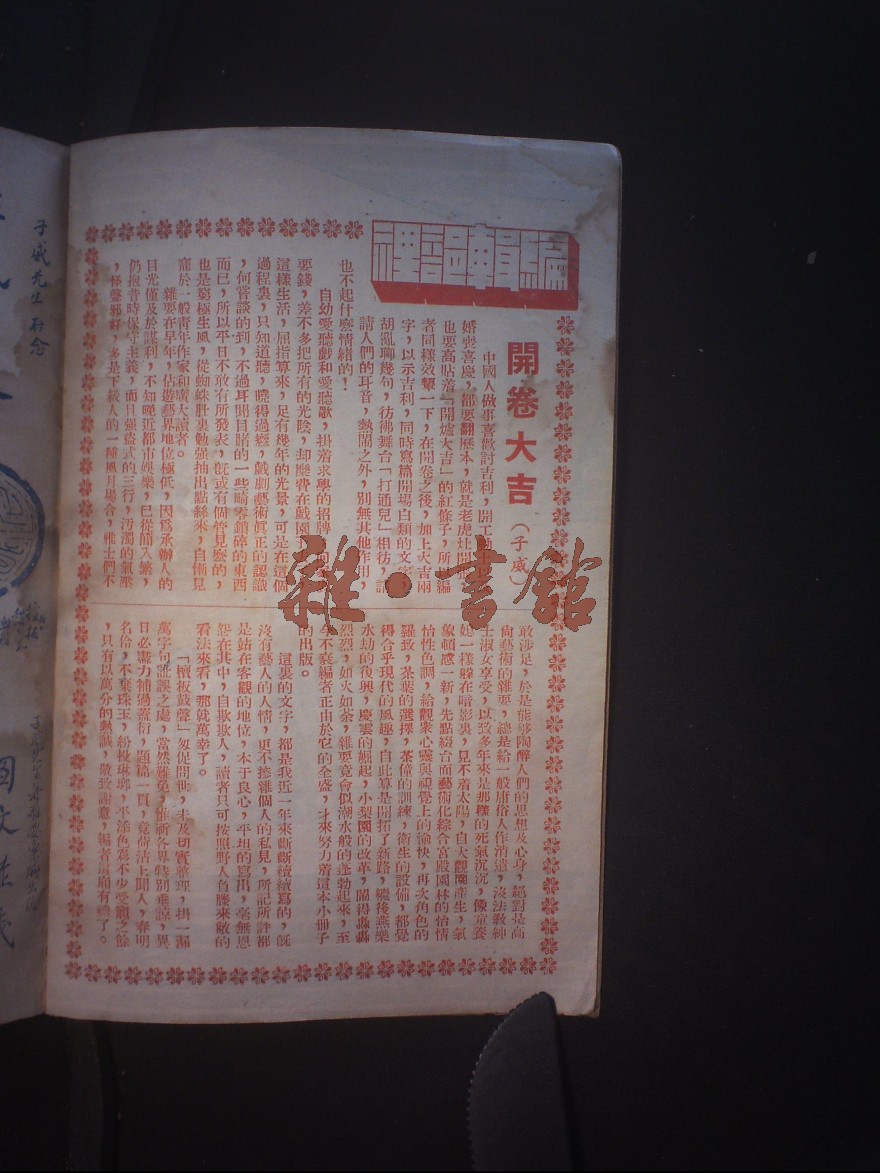 編輯瑣話
開卷大吉
(子威)
中國人做事喜歡討吉利,開工動土
婚喪喜慶,都要翻歷本,就是老虎灶開張
也要高貼着「開爐大吉」的紅條子,所以編
者同樣效顰一下,在開卷之後,加上大吉兩
字,以示吉利,同時寫篇開場白類的文字,
胡亂聊幾句,彷彿舞台「打通兒」相彷,請
請人們的耳音,熱鬧之外,別無其他作用,
也不起什麼情緒的!
自幼愛聽戲和愛聽歌,掛着求學的招牌,向
要錢,差不多把所有的光陰,却糜費在戲園
這樣生活,屈指算來,足有幾年的光景,可是在這個
過程裏,只知道聽,曉得過癮,戲劇藝術眞正的認識
,何嘗談的到,不過耳聞目睹的一些畸零鎖碎的東西
而已,所以平日不敢有所發表,旣或有個管見麽的,
也是窮極生風,從蜘蛛肚裏勉强抽出點絲來,自慚見
竉於一般靑年作家和廣大讀者。
雜耍在早年,佔遊藝界地位極低,因爲承辦人的
目光僅及於謀利,不知晚近都市娛樂,已從簡入繁,
仍抱昔時保守主義,而且强盜式的三行,汚濁的氣派
,怪聲邪好,多是下級人的一種風月場合,雅士們不
敢涉足,於是能够陶醉人們的思想及心身,絕對是高
尙藝術的雜耍,總是給一般庸俗人作消遣,沒法敎紳
士淑女享受,以致多年來是那樣的死氣沉沉,像童養
媳一樣躱在暗影裏,見不着太陽,自大觀園產生,氣
象頓感一新,先點綴台面藝術化綜合宮殿園林的怡情
怡性色調,給觀衆心靈與視覺上的愉快,再次角色的
羅致,茶葉的選擇,茶僮的訓練,衛生的設備,都覺
得合乎現代的風趣,自此算是開拓了新路,繼後燕樂
水劫的復興,慶雲的崛起,小梨園的改革,鬧得轟轟
烈烈,如火如荼,雜耍竟會似潮水般的蓬勃起來,至
今不衰編者正由於它的全盛,才來努力着這本小冊子
的出版。
這裏的文字,都是我近一年來斷斷續續寫的,旣
沒有藝人的人情,更不摻雜個人的私見,所記所評都
是站在客觀的地位,本于良心,平坦的寫出,毫無恩
怨在其中,自欺欺人,讀者只可按照野人負滕來敢的
看法來看,那就萬幸了。
「檀板鼓聲」匆促問世,未及切實整理,拱一漏
萬字句訛誤之處,當然難免,惟祈各界特別垂諒,異
日必盡力補過蓋衍,題篇一頁,竟荷沽上聞人,春明
名伶,不棄珠玉,紛投琳瑯,平添色爲不少受寵之餘
,只有以萬分的熱誠,敬致謝意,編者這廂有禮了。
雜·書館
子威先生存念